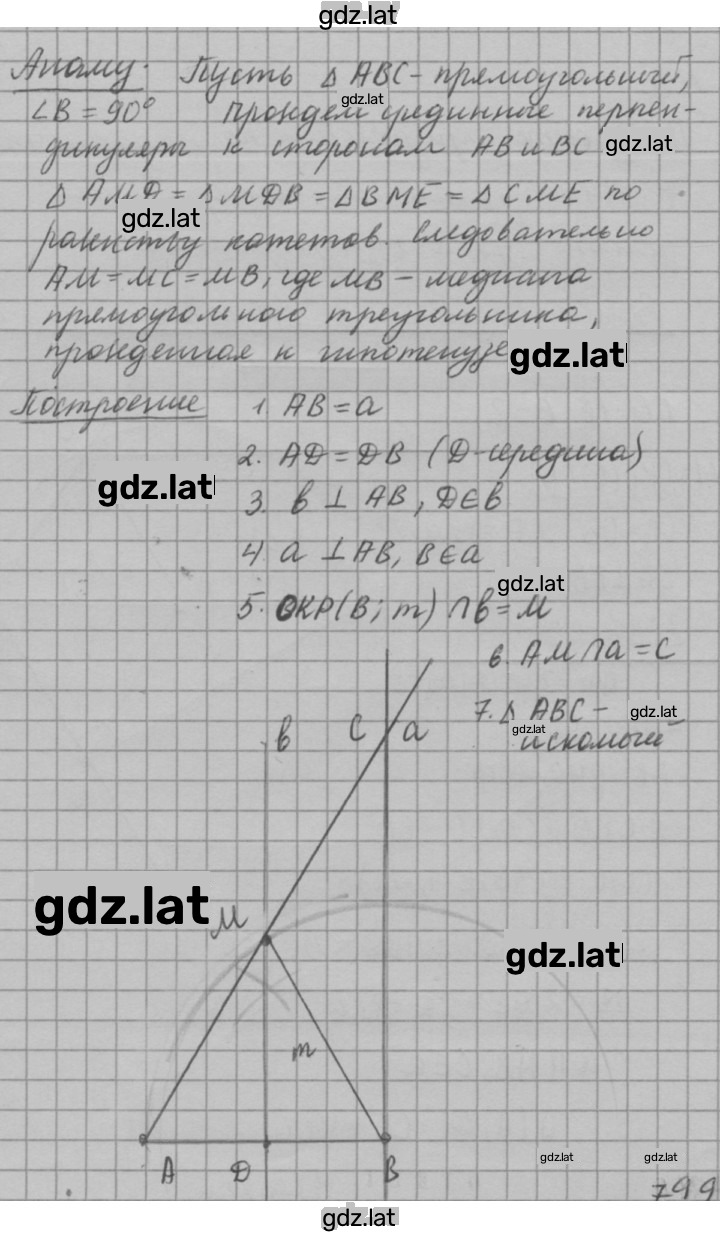 gdz.lat
Анализ. Пусть △ ABC - прямоугольный,
∠B = 90° проидем срединные перпен-
gdz.lat
дикуляры к сторонам AB и BC gdz.lat
△ AMD = △ MDB = △ BME = △ CME по
gdz.lat
равенству катетов. Следовательно
AM = MC = MB, где MB - медиана
прямоугольного треугольника,
проведенная к гипотенузе gdz.lat
Построение 1. AB = a
2. AD = DB (D - середина)
gdz.lat
3. b ⊥ AB, D ∈ b
4 a ⊥ AB, B ∈ a
gdz.lat
5. ОКР(B; m) ∩ b = M
6. AM ∩ a = C
7. △ ABC - gdz.lat
gdz.lat
искомый
b C a
gdz.lat M
gdz.lat
m
A D B
gdz.lat gdz.lat
799
gdz.lat